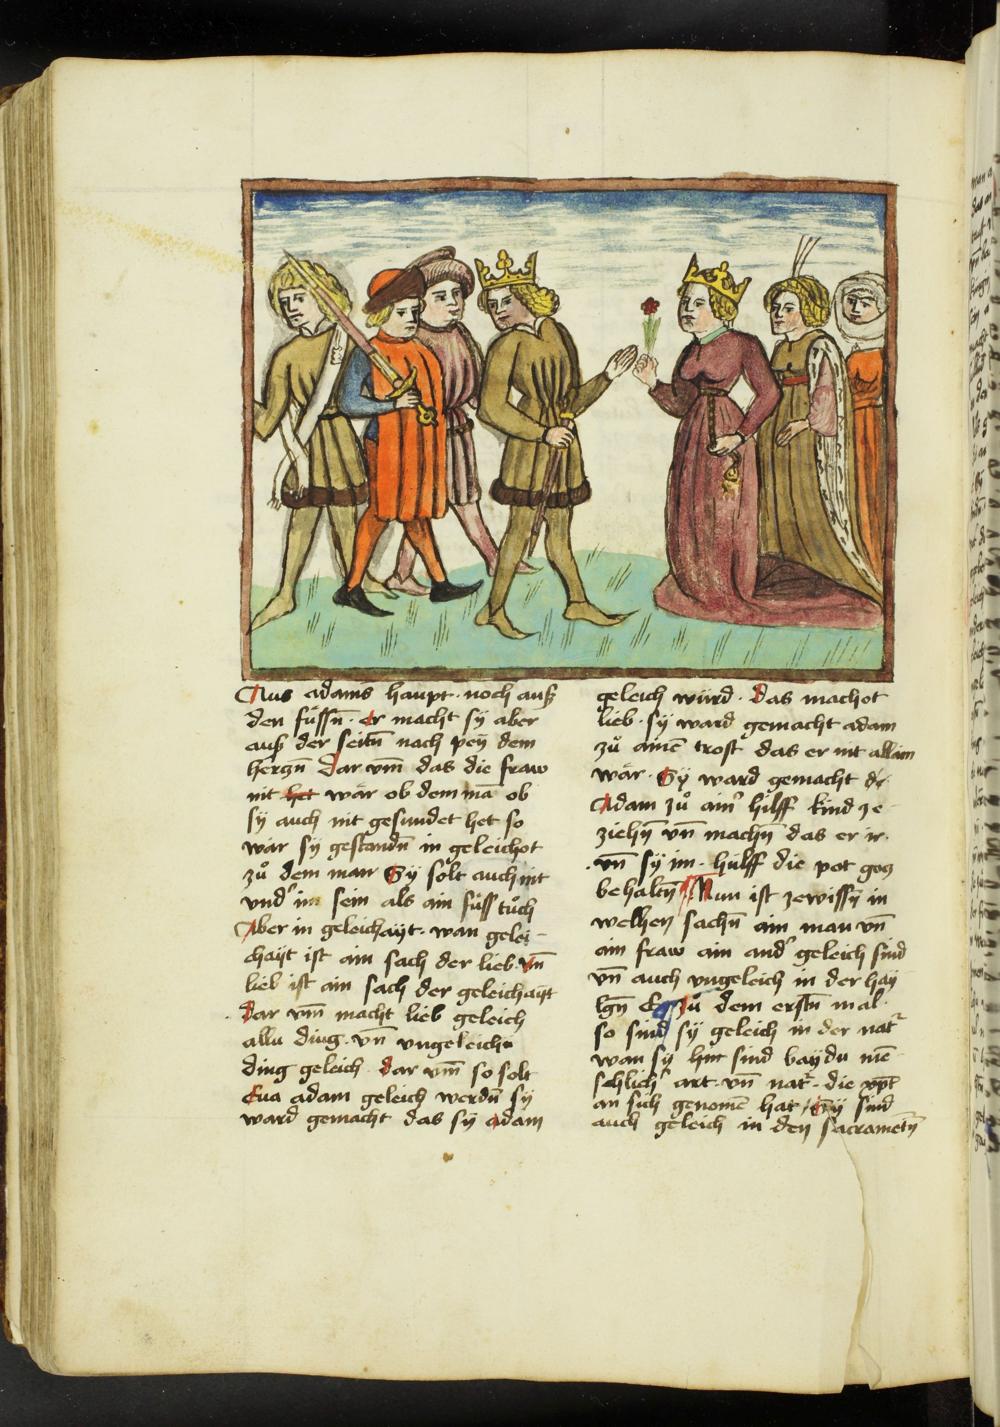 Aus adams haupt · noch auß
den füssn̄ · er macht sy aber
auß der seitn̄ nach peӱ dem
herczn̄ Dar vm̄ das die fraw
nit het wär ob dem mā ob
sӱ auch nit gesundet het so
wär sӱ gestandn̄ in geleichot
zů dem man Sӱ solt auch nit
vnd' im sein als ain fůsstůch
Aber in geleichaӱt · wan gelei-
chaӱt ist ain sach der lieb · vn̄
lieb ist ain sach der geleichaӱt
· Dar vm̄ macht lieb geleich
allu ding · vn̄ vngeleichu
ding geleich · dar vm̄ so solt
Eua adam geleich werdn̄ sӱ
ward gemacht das sӱ adam
geleich würd · Das machot
lieb · sӱ ward gemacht adam
zů ainē trost das er nit allain
wär · Sӱ ward gemacht dē
Adam zů ain' hilff kind ze
ziehn̄ vn̄ machn̄ das er ir ·
· vn̄ sӱ im · hülff die pot gocz
behaltn̄ Nun ist ze wissn̄ in
welhen sachn̄ ain man vn̄
ain fraw ain and' geleich sind
vn̄ auch vngeleich in der hay
lgn̄ Ee Zů dem erstn̄ mal ·
so sind sӱ geleich in der nat'
wan sӱ hie sind baӱdu mē-
schlich' art · vn̄ nat' · die xp̄t
an sich genomē hat / Sӱ sind
auch geleich in den sacramētn̄